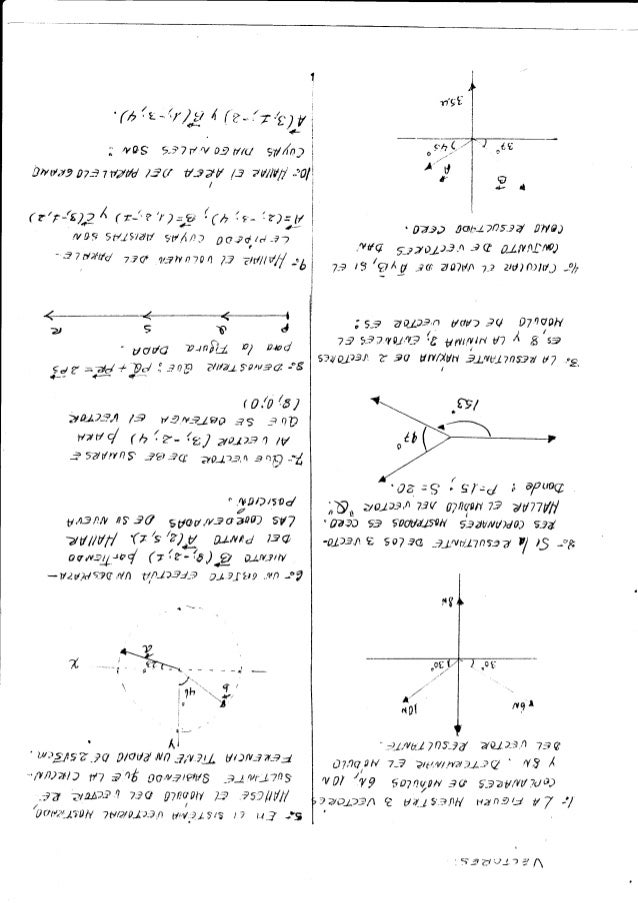 VECTORES:
1.- LA FIGURA MUESTRA 3 VECTORES
COPLANARES DE MÓDULOS 6N, 10N
Y 8N. DETERMINAR EL MODULO
DEL VECTOR RESULTANTE.
6N
10N
30°
30°
8N
2.- SI la RESULTANTE DE LOS 3 VECTO-
RES COPLANARES MOSTRADOS ES CERO.
HALLAR EL MÓDULO DEL VECTOR "Q".
Donde : P=15 ; S= 20.
97°
153°
3.- LA RESULTANTE MÁXIMA DE 2 VECTORES
ES 8 Y LA MINIMA 2, ENTONCES EL
MODULO DE CADA VECTOR ES:
4.- CALCULAR EL VALOR DE A Y B, SI EL
CONJUNTO DE VECTORES DAN
COMO RESULTADO CERO.
B
A
37°
45°
35u
5.- EN EL SISTEMA VECTORIAL MOSTRADO,
HALLESE EL MÓDULO DEL VECTOR RE
SULTANTE SABIENDO QUE LA CIRCUN-
FERENCIA TIENE UN RADIO DE 25√3 cm.
Y
b
46°
X
a
6.- UN OBJETO EFECTÚA UN DESPLAZA-
MIENTO B (8,-2; 1) partiendo
DEL PUNTO A(2, 5, 1) HALLAR
LAS COORDENADAS DE SU NUEVA
POSICION.
7.- QUE VECTOR DEBE SUMARSE
AL VECTOR (3; -2; 4) PARA
QUE SE OBTENGA EL VECTOR
(8; 0; 0)
8.- DEMOSTRAR QUE: PQ + PR = 2PS
para la figura DADA.
P Q S R
9.- HALLAR EL VOLUMEN DEL PARALE-
LEPIPEDO CUYAS ARISTAS SON
A=(2; -3; 4); B=(1, 2, -1) y C(3,-1, 2)
10.- HALLAR EL ÁREA DEL PARALELOGRAMO
CUYAS DIAGONALES SON:
A(3, 1, -2) y B(1, -3, 4).